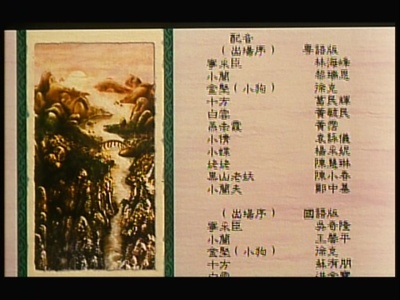 配音
（出場序） 粵語版
寧采臣 林海峰
小蘭 黎瑞恩
金堅（小狗） 徐克
十方 葛民輝
白雲 黃毓民
燕赤霞 黃霑
小倩 袁詠儀
小蝶 楊采妮
姥姥 陳慧琳
黑山老妖 陳小春
小蘭夫 鄭中基
（出場序） 國語版
寧采臣 吳奇隆
小蘭 王馨平
金堅（小狗） 徐克
十方 蘇有朋
白雲 洪金寶